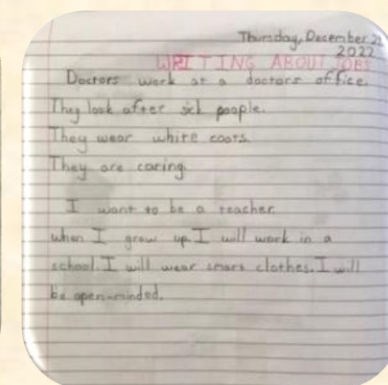 Thursday, December 2
2022
WRITING ABOUT JOBS
Doctors work at a doctors office.
They look after sick people.
They wear white coats.
They are caring.
I want to be a teacher
when I grow up. I will work in a
school. I will wear smart clothes. I will
be open-minded.